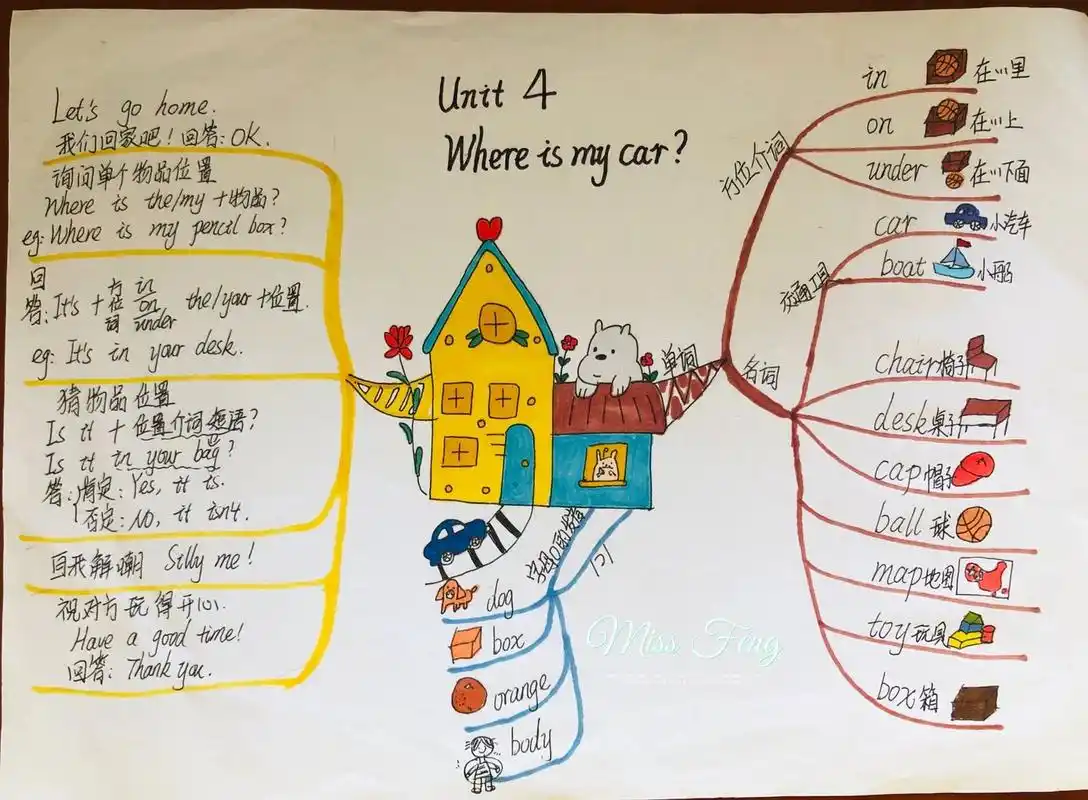 Unit 4
Where is my car?
Let's go home.
我们回家吧！回答：OK.
询问单个物品位置
Where is the/my +物品?
eg: Where is my pencil box?
回答: It's + 方位词 in on under the/your +位置.
eg: It's in your desk.
猜物品位置
Is it + 位置介词短语?
Is it in your bag?
答: 肯定: Yes, it is.
否定: No, it isn't.
自我解嘲 Silly me!
祝对方玩得开心.
Have a good time!
回答: Thank you.
单词
方位介词
in 在…里
on 在…上
under 在…下面
名词
交通工具
car 小汽车
boat 小船
chair 椅子
desk 桌子
cap 帽子
ball 球
map 地图
toy 玩具
box 箱
字母O的发音
/ɔ/
dog
box
orange
body
Miss Feng